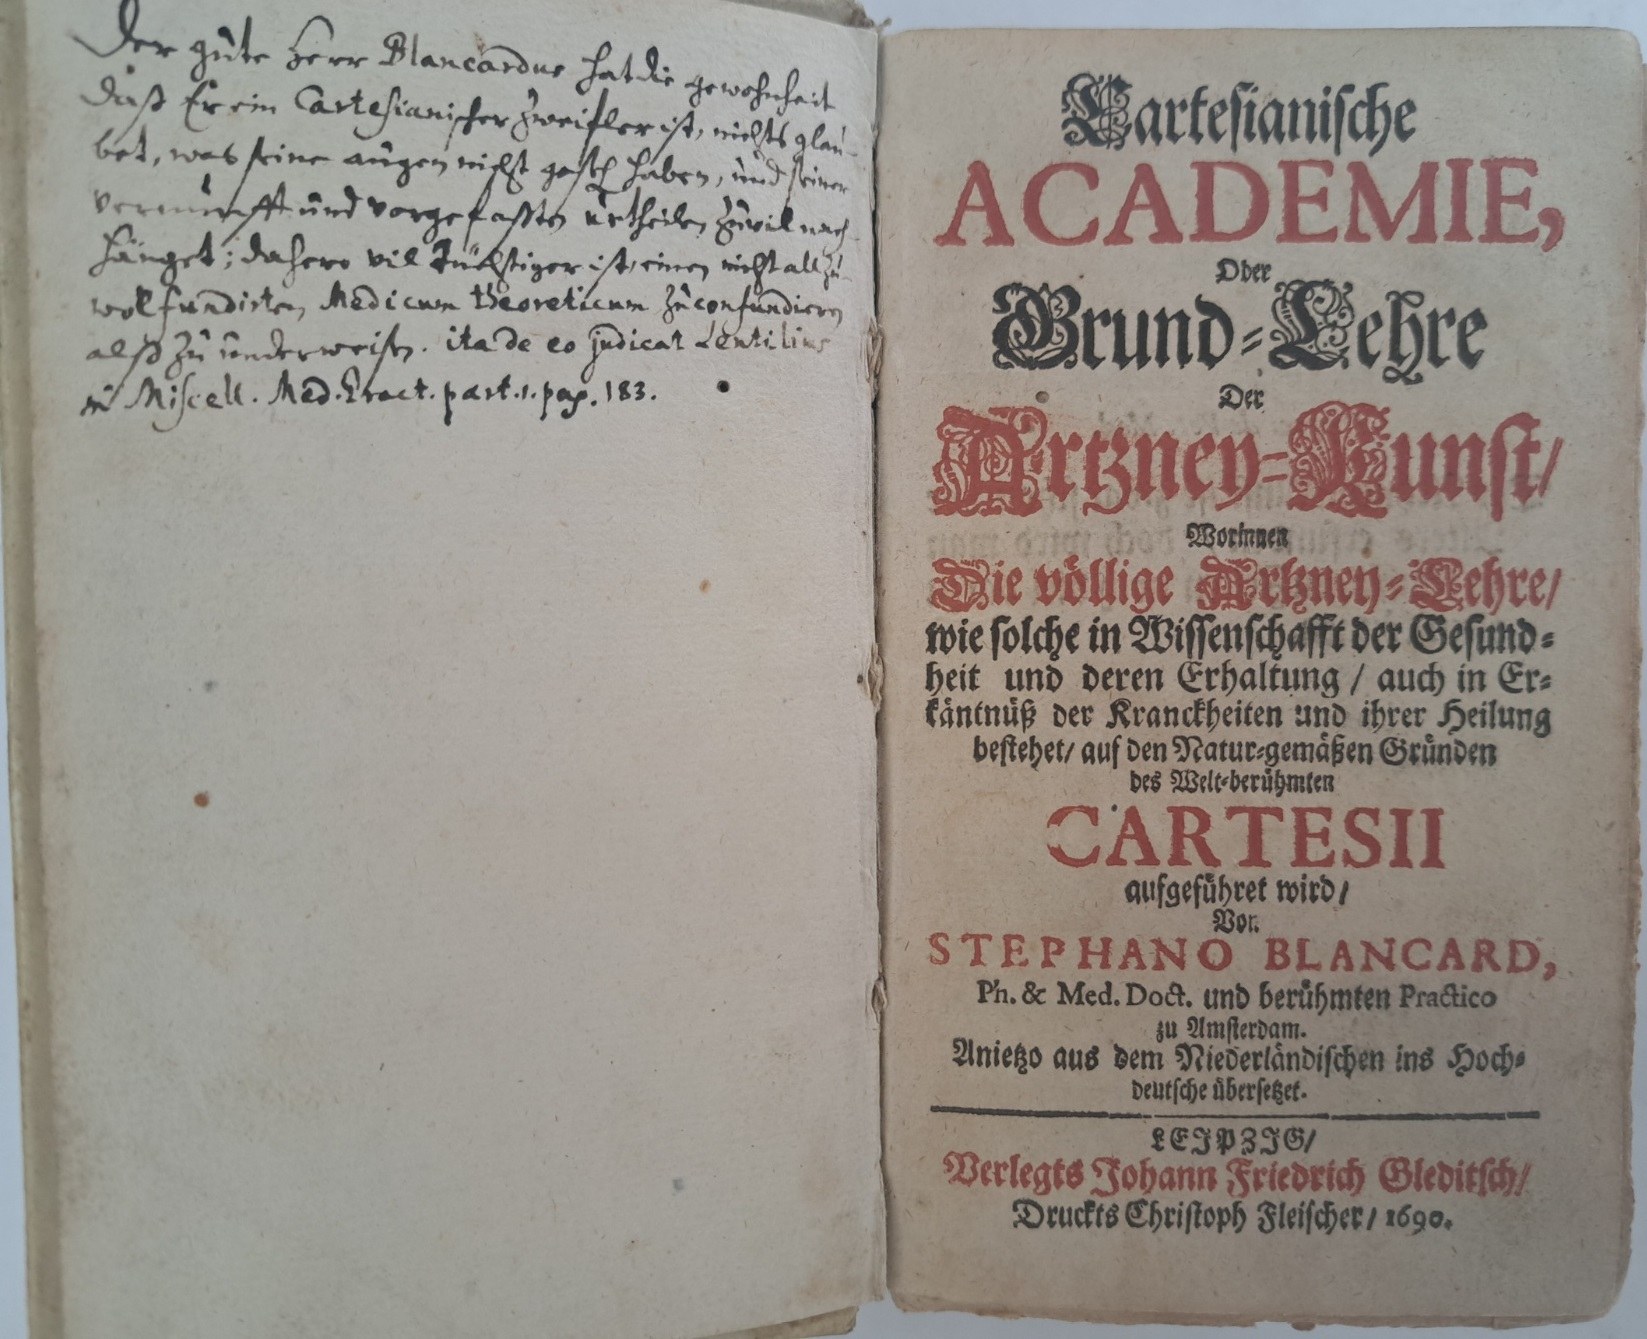 Der gute Herr Blancardus hat die gewohnheit
daß Er ein Cartesianischer Zweifler ist, nichts glau-
bet, was seine augen nicht haben, und seiner
vernunfft und vorgefassten urtheilen zuvil nach-
hänget; dahero vil tüchtiger ist, einen nicht allzu-
wol fundirten Medicum theoreticum zu confundiren
alß zu underweisen. ita de eo judicat Lentilius
in Miscell. Med. Pract. part. 1. pag. 183.
Cartesianische
ACADEMIE,
Oder
Grund-Lehre
Der
Artzney-Kunst/
Worinnen
Die völlige Artzney-Lehre/
wie solche in Wissenschafft der Gesund-
heit und deren Erhaltung / auch in Er-
käntnüß der Kranckheiten und ihrer Heilung
bestehet/ auf den Natur-gemäßen Gründen
des Welt-berühmten
CARTESII
aufgeführet wird/
Von
STEPHANO BLANCARD,
Ph. & Med. Doct. und berühmten Practico
zu Amsterdam.
Anietzo aus dem Niederländischen ins Hoch-
deutsche übersetzet.
LEIPZIG/
Verlegts Johann Friedrich Gleditsch/
Druckts Christoph Fleischer/ 1690.